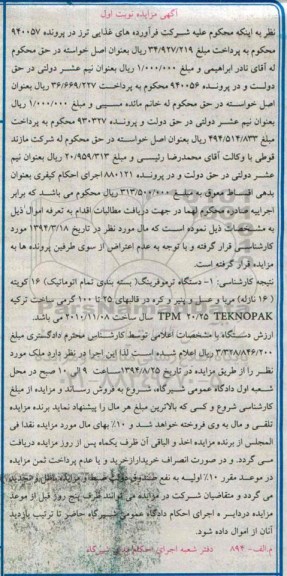 آگهی مزایده نوبت اول
نظر به اینکه محکوم علیه شرکت فرآورده های غذایی ترز در پرونده ۹۴۰۰۵۷
محکوم به پرداخت مبلغ ۳۴/۹۲۷/۲۱۹ ریال بعنوان اصل خواسته در حق محکوم
له آقای نادر ابراهیمی و مبلغ ۱/۰۰۰/۰۰۰ ریال بعنوان نیم عشر دولتی در حق
دولت و در پرونده ۹۴۰۰۵۶ محکوم به پرداخت ۳۶/۶۶۹/۲۲۷ ریال بعنوان
اصل خواسته در حق محکوم له خانم مائده مسیبی و مبلغ ۱/۰۰۰/۰۰۰ ریال
بعنوان نیم عشر دولتی در حق دولت و در پرونده ۹۳۰۳۲۷ محکوم به پرداخت
مبلغ ۴۹۴/۵۱۴/۸۳۳ ریال بعنوان اصل خواسته در حق محکوم له شرکت مازند
قوطی با وکالت آقای محمدرضا رئیسی و مبلغ ۲۰/۹۵۹/۳۱۳ ریال بعنوان نیم
عشر دولتی در حق دولت و در پرونده ۸۸۰۱۲۱ اجرای احکام کیفری بعنوان
بدهی اقساط معوق به مبلغ ۳۱۳/۵۰۰/۶۰۰ ریال محکوم می باشد که برابر
اجراییه صادره محکوم لهما در جهت دریافت مطالبات اقدام به تعرفه اموال ذیل
به مشخصات ذیل نموده است که مال مورد نظر در تاریخ ۱۳۹۴/۳/۱۸ مورد
کارشناسی قرار گرفته و با توجه به عدم اعتراض از سوی طرفین پرونده ها به
مزایده قرار گرفته است.
نتیجه کارشناسی: ۱- دستگاه ترموفرینگ( بسته بندی تمام اتوماتیک) ۱۶ کوپته
( ۱۶ نازله) مربا و عسل و پنیر و کره در قالبهای ۲۵ تا ۱۰۰ گرمی ساخت ترکیه
TEKNOPAK ۲۰/۲۵ TPM سال ساخت ۲۰۱۰/۱۱/۰۸ می باشد.
ارزش دستگاه با مشخصات اعلامی توسط کارشناس محترم دادگستری مبلغ
۳/۳۲۸/۸۴۶/۲۰۰ ریال اعلام شده است لذا این اجرا در نظر دارد ملک مورد
نظر را از طریق مزایده در تاریخ ۱۳۹۴/۸/۲۵ ساعت ۹ الی ۱۰ صبح در محل
شعبه اول دادگاه عمومی شیرگاه، شروع به فروش رساند و مزایده از مبلغ
کارشناسی شروع و کسی که بالاترین مبلغ هر مال را پیشنهاد نماید برنده مزایده
تلقی و مال به وی فروخته خواهد شد و ۱۰٪ بهای مال مورد مزایده نقدا فی
المجلس از برنده مزایده اخذ و الباقی آن ظرف یکماه پس از روز مزایده دریافت
می گردد. و در صورت انصراف خریدار از خرید و یا عدم پرداخت ثمن مزایده
در موعد مقرر ۱۰٪ اولیه به نفع صندوق دولت ضبط و مزایده باطل و تجدید
می گردد و متقاضیان شرکت در مزایده می توانند ظرف پنج روز قبل از موعد
مزایده در دایره اجرای احکام دادگاه عمومی شیرگاه حاضر تا ترتیب بازدید
آنان از اموال داده شود.
م.الف- ۸۹۴ دفتر شعبه اجرای احکام مدنی شیرگاه